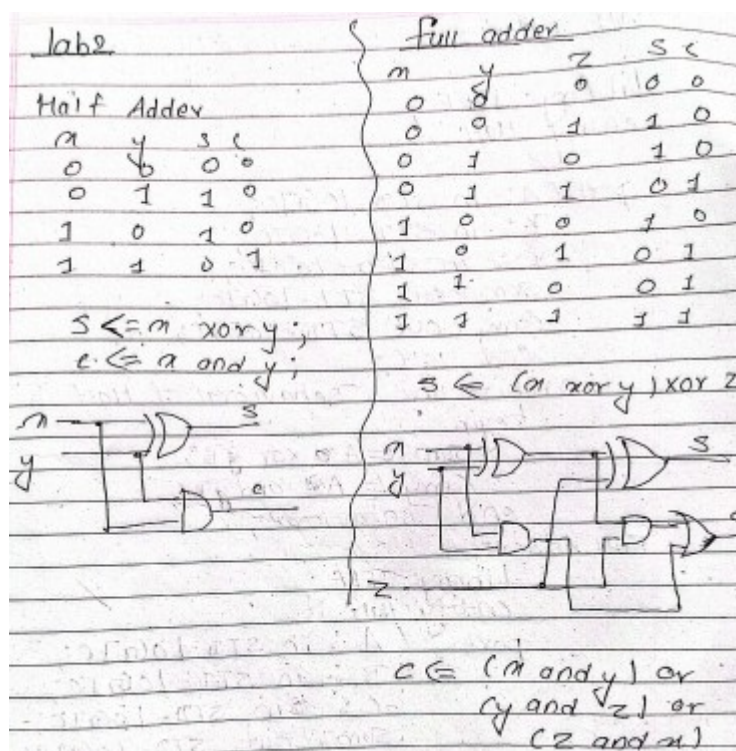 lab2
Half Adder
x y s c
0 0 0 0
0 1 1 0
1 0 1 0
1 1 0 1
s <= x xor y;
c <= x and y;
x
y
s
c
full adder
x y z s c
0 0 0 0 0
0 0 1 1 0
0 1 0 1 0
0 1 1 0 1
1 0 0 1 0
1 0 1 0 1
1 1 0 0 1
1 1 1 1 1
s <= (x xor y) xor z
x
y
z
s
c <= (x and y) or
(y and z) or
(z and x)